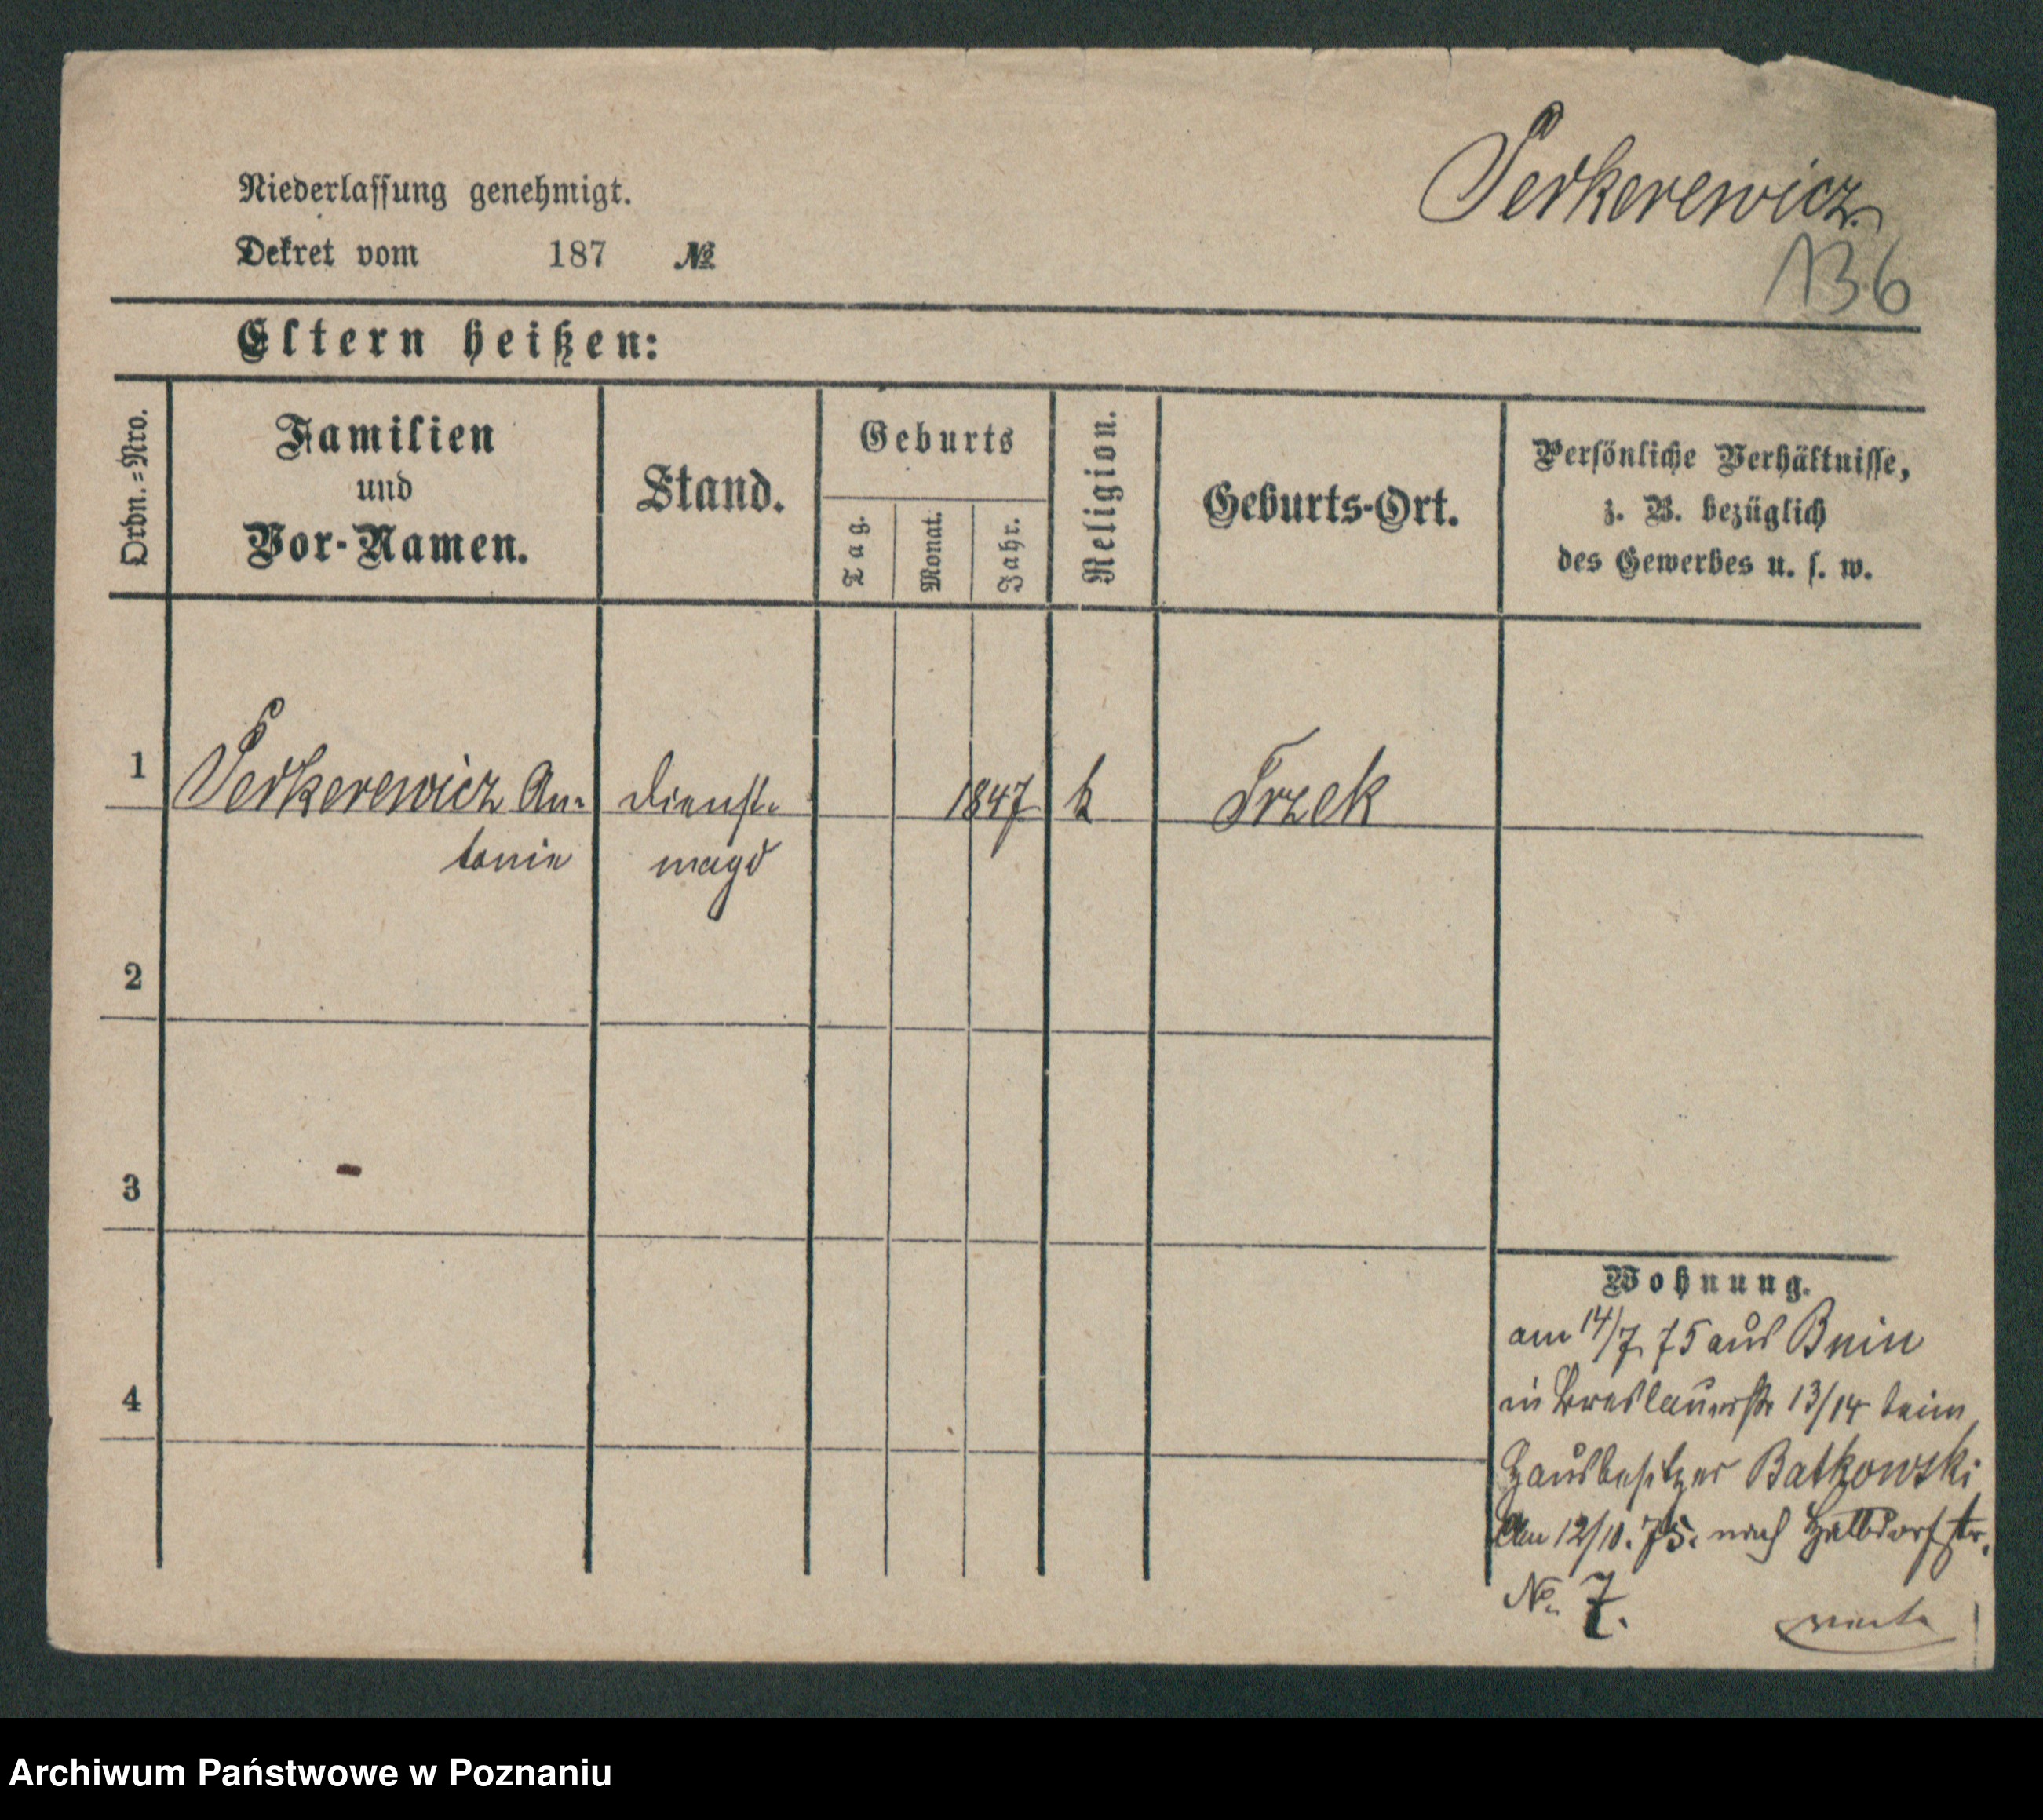 Perkerewicz.
136
Niederlassung genehmigt.
Dekret vom 187 №
Eltern heißen:
Ordn.=Nro.
Familien
und
Vor-Namen.
Stand.
Geburts
Tag.
Monat.
Jahr.
Religion.
Geburts-Ort.
Persönliche Verhältnisse,
z. B. bezüglich
des Gewerbes u. s. w.
1 Perkerewicz An- Dienst- 1847 k Trzek
tonie magd
2
3
4
Wohnung.
am 14/7 75 aus Bnin
in Breslauerstr 13/14 beim
Hausbesitzer Batkowski
Am 12/10. 75. nach Halbdorfstr.
No. 7.
Archiwum Państwowe w Poznaniu